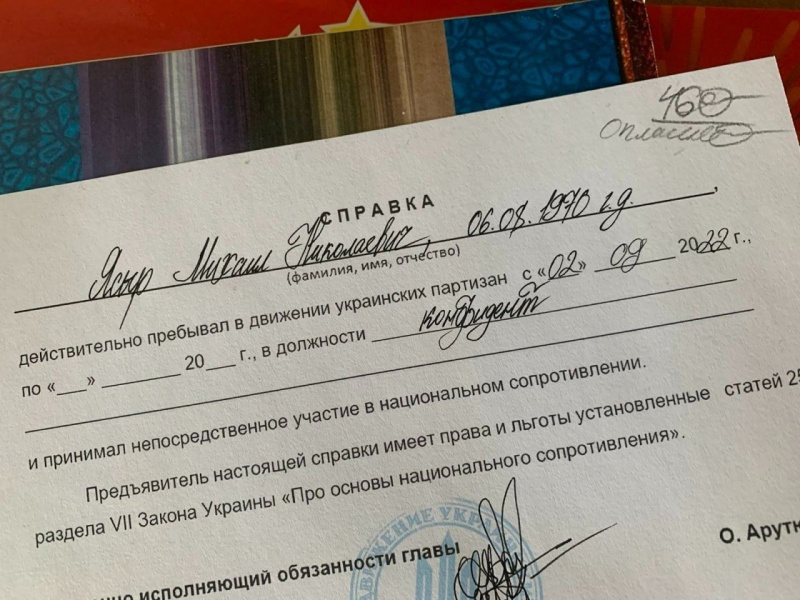 460
Оплачено
СПРАВКА
Яныр Михаил Николаевич, 06.08.1970 г.р.,
(фамилия, имя, отчество)
действительно пребывал в движении украинских партизан с «02» 09 2022 г.,
по «___» ________ 20___ г., в должности конфидент
и принимал непосредственное участие в национальном сопротивлении.
Предъявитель настоящей справки имеет права и льготы установленные статей 25
раздела VII Закона Украины «Про основы национального сопротивления».
нно исполняющий обязанности главы
О. Арутю
ДВИЖЕНИЕ УКРАИН